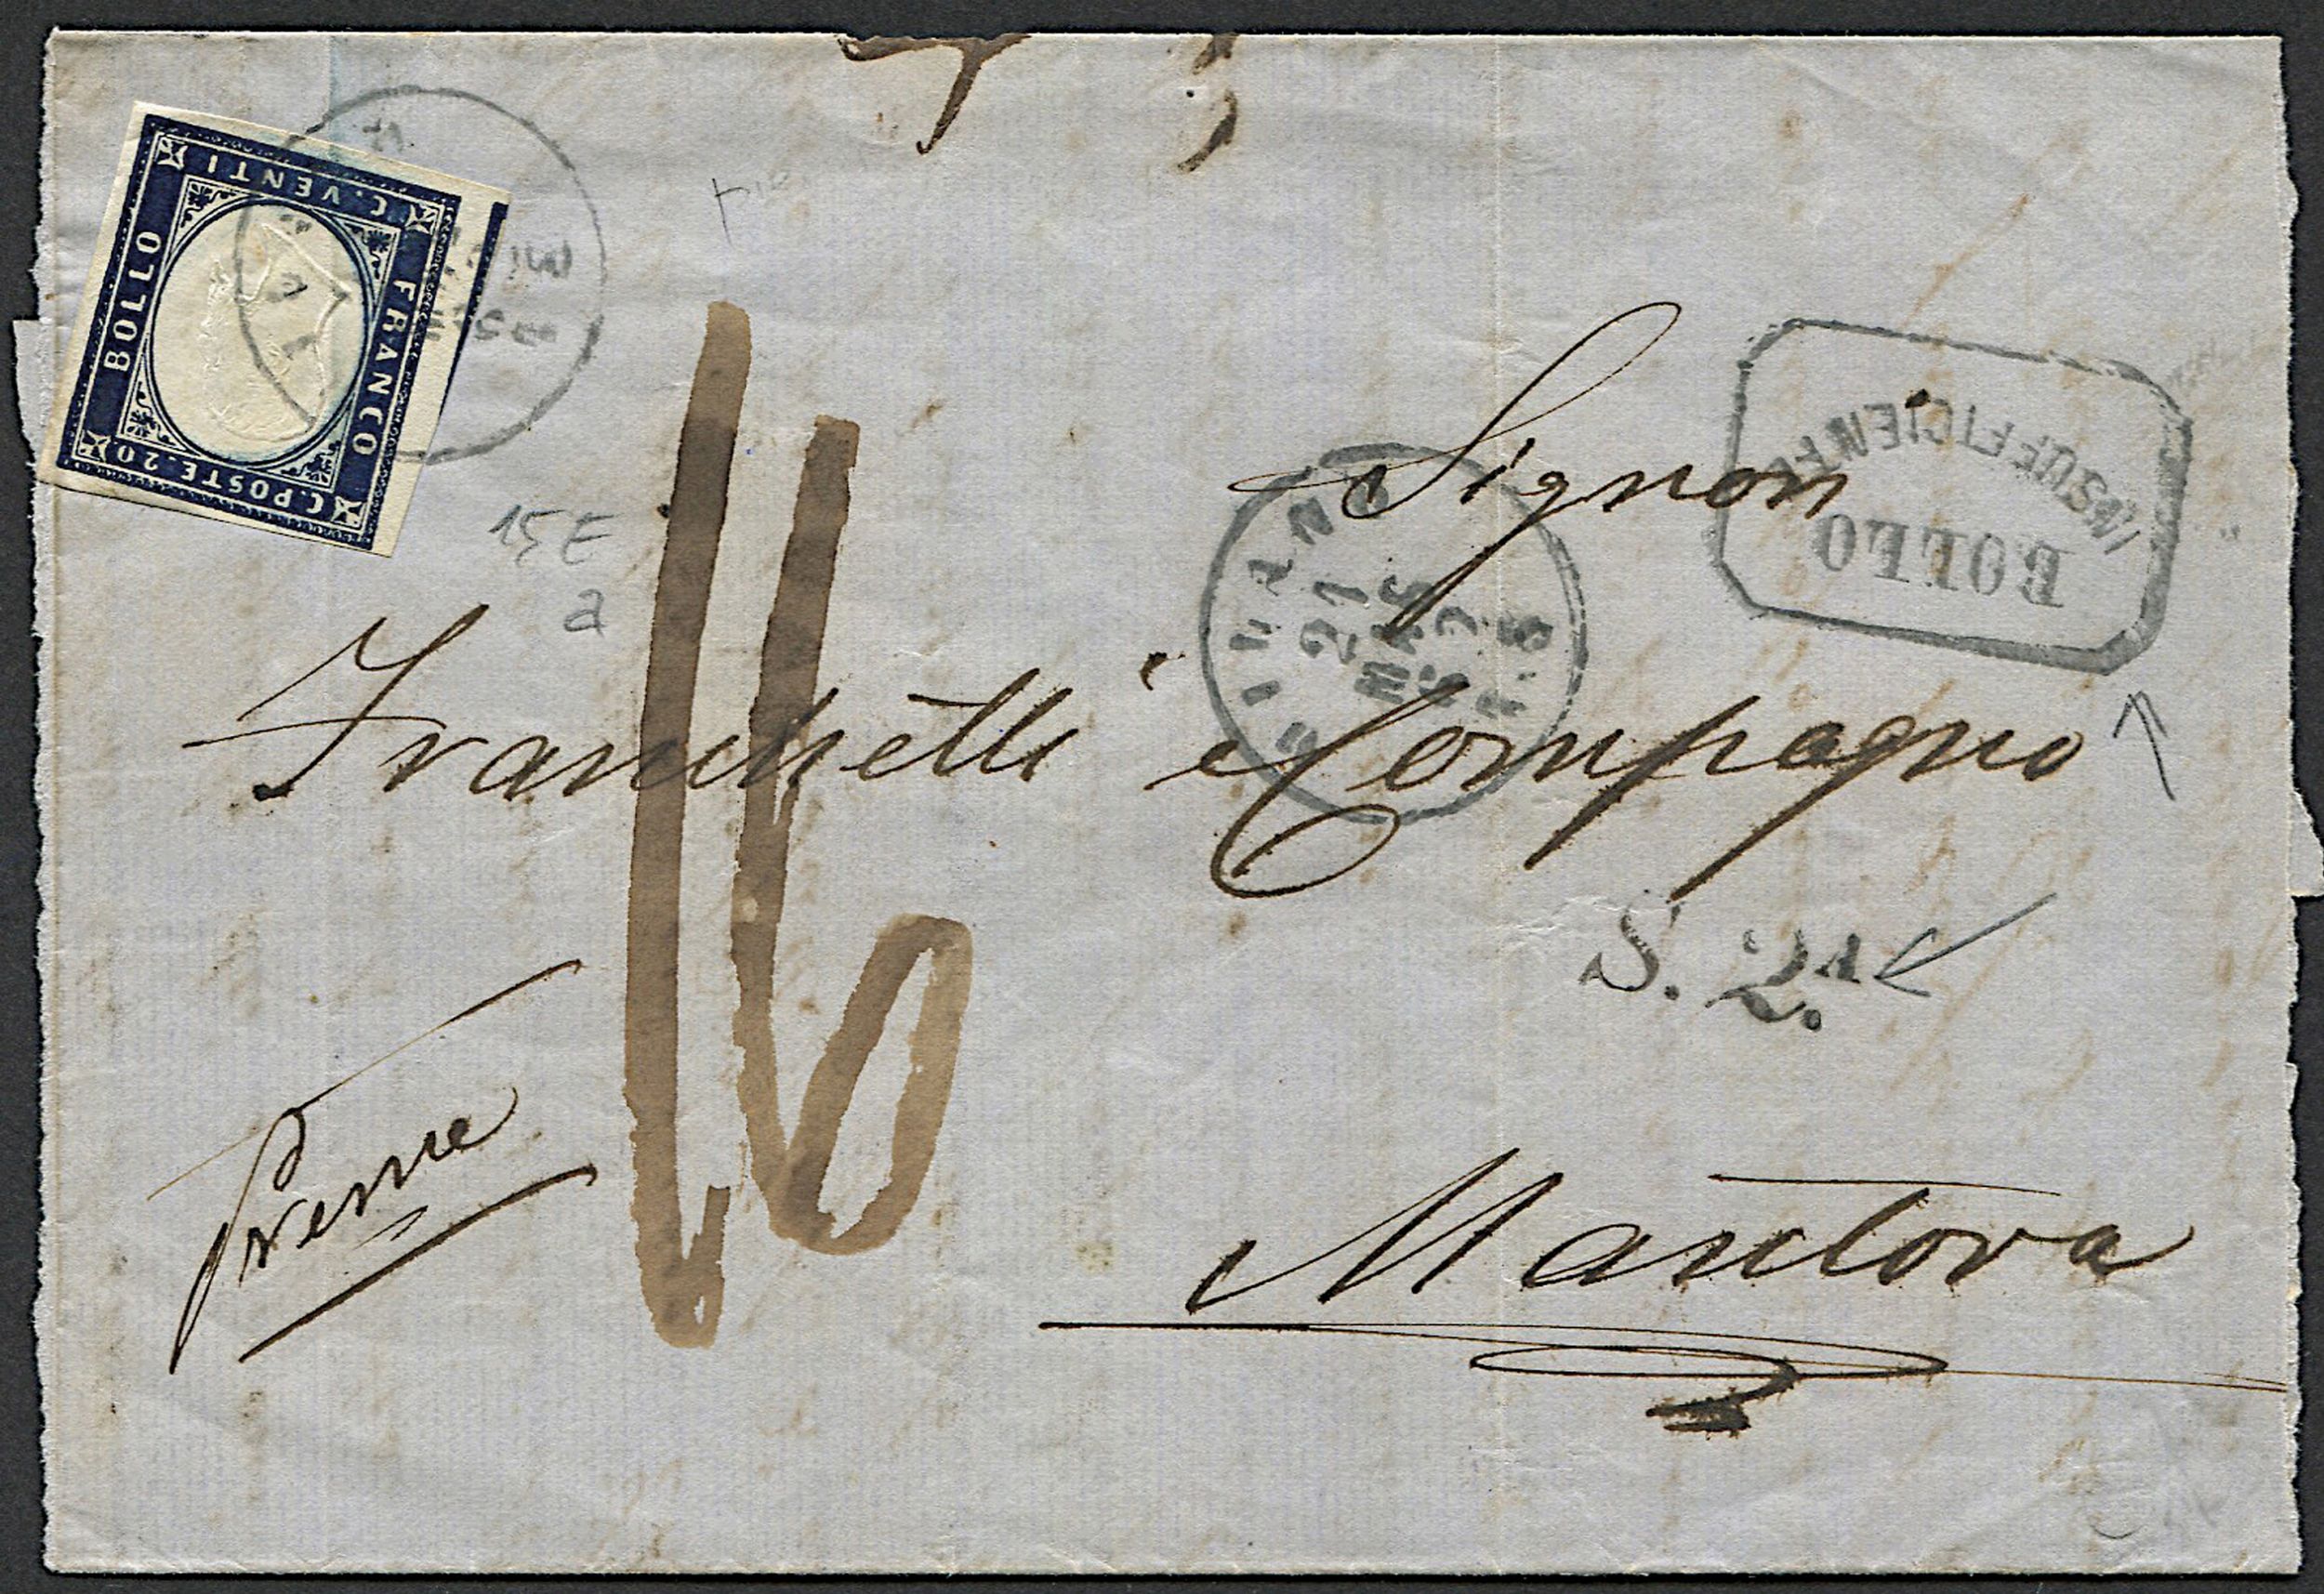 C. VENTI
BOLLO
FRANCO
C. POSTE. 20
15E
a
Signori
INSUFFICIENTE
BOLLO
21
MAG
Franchetti e Compagno
S. 2.
16
Preme
Mantova